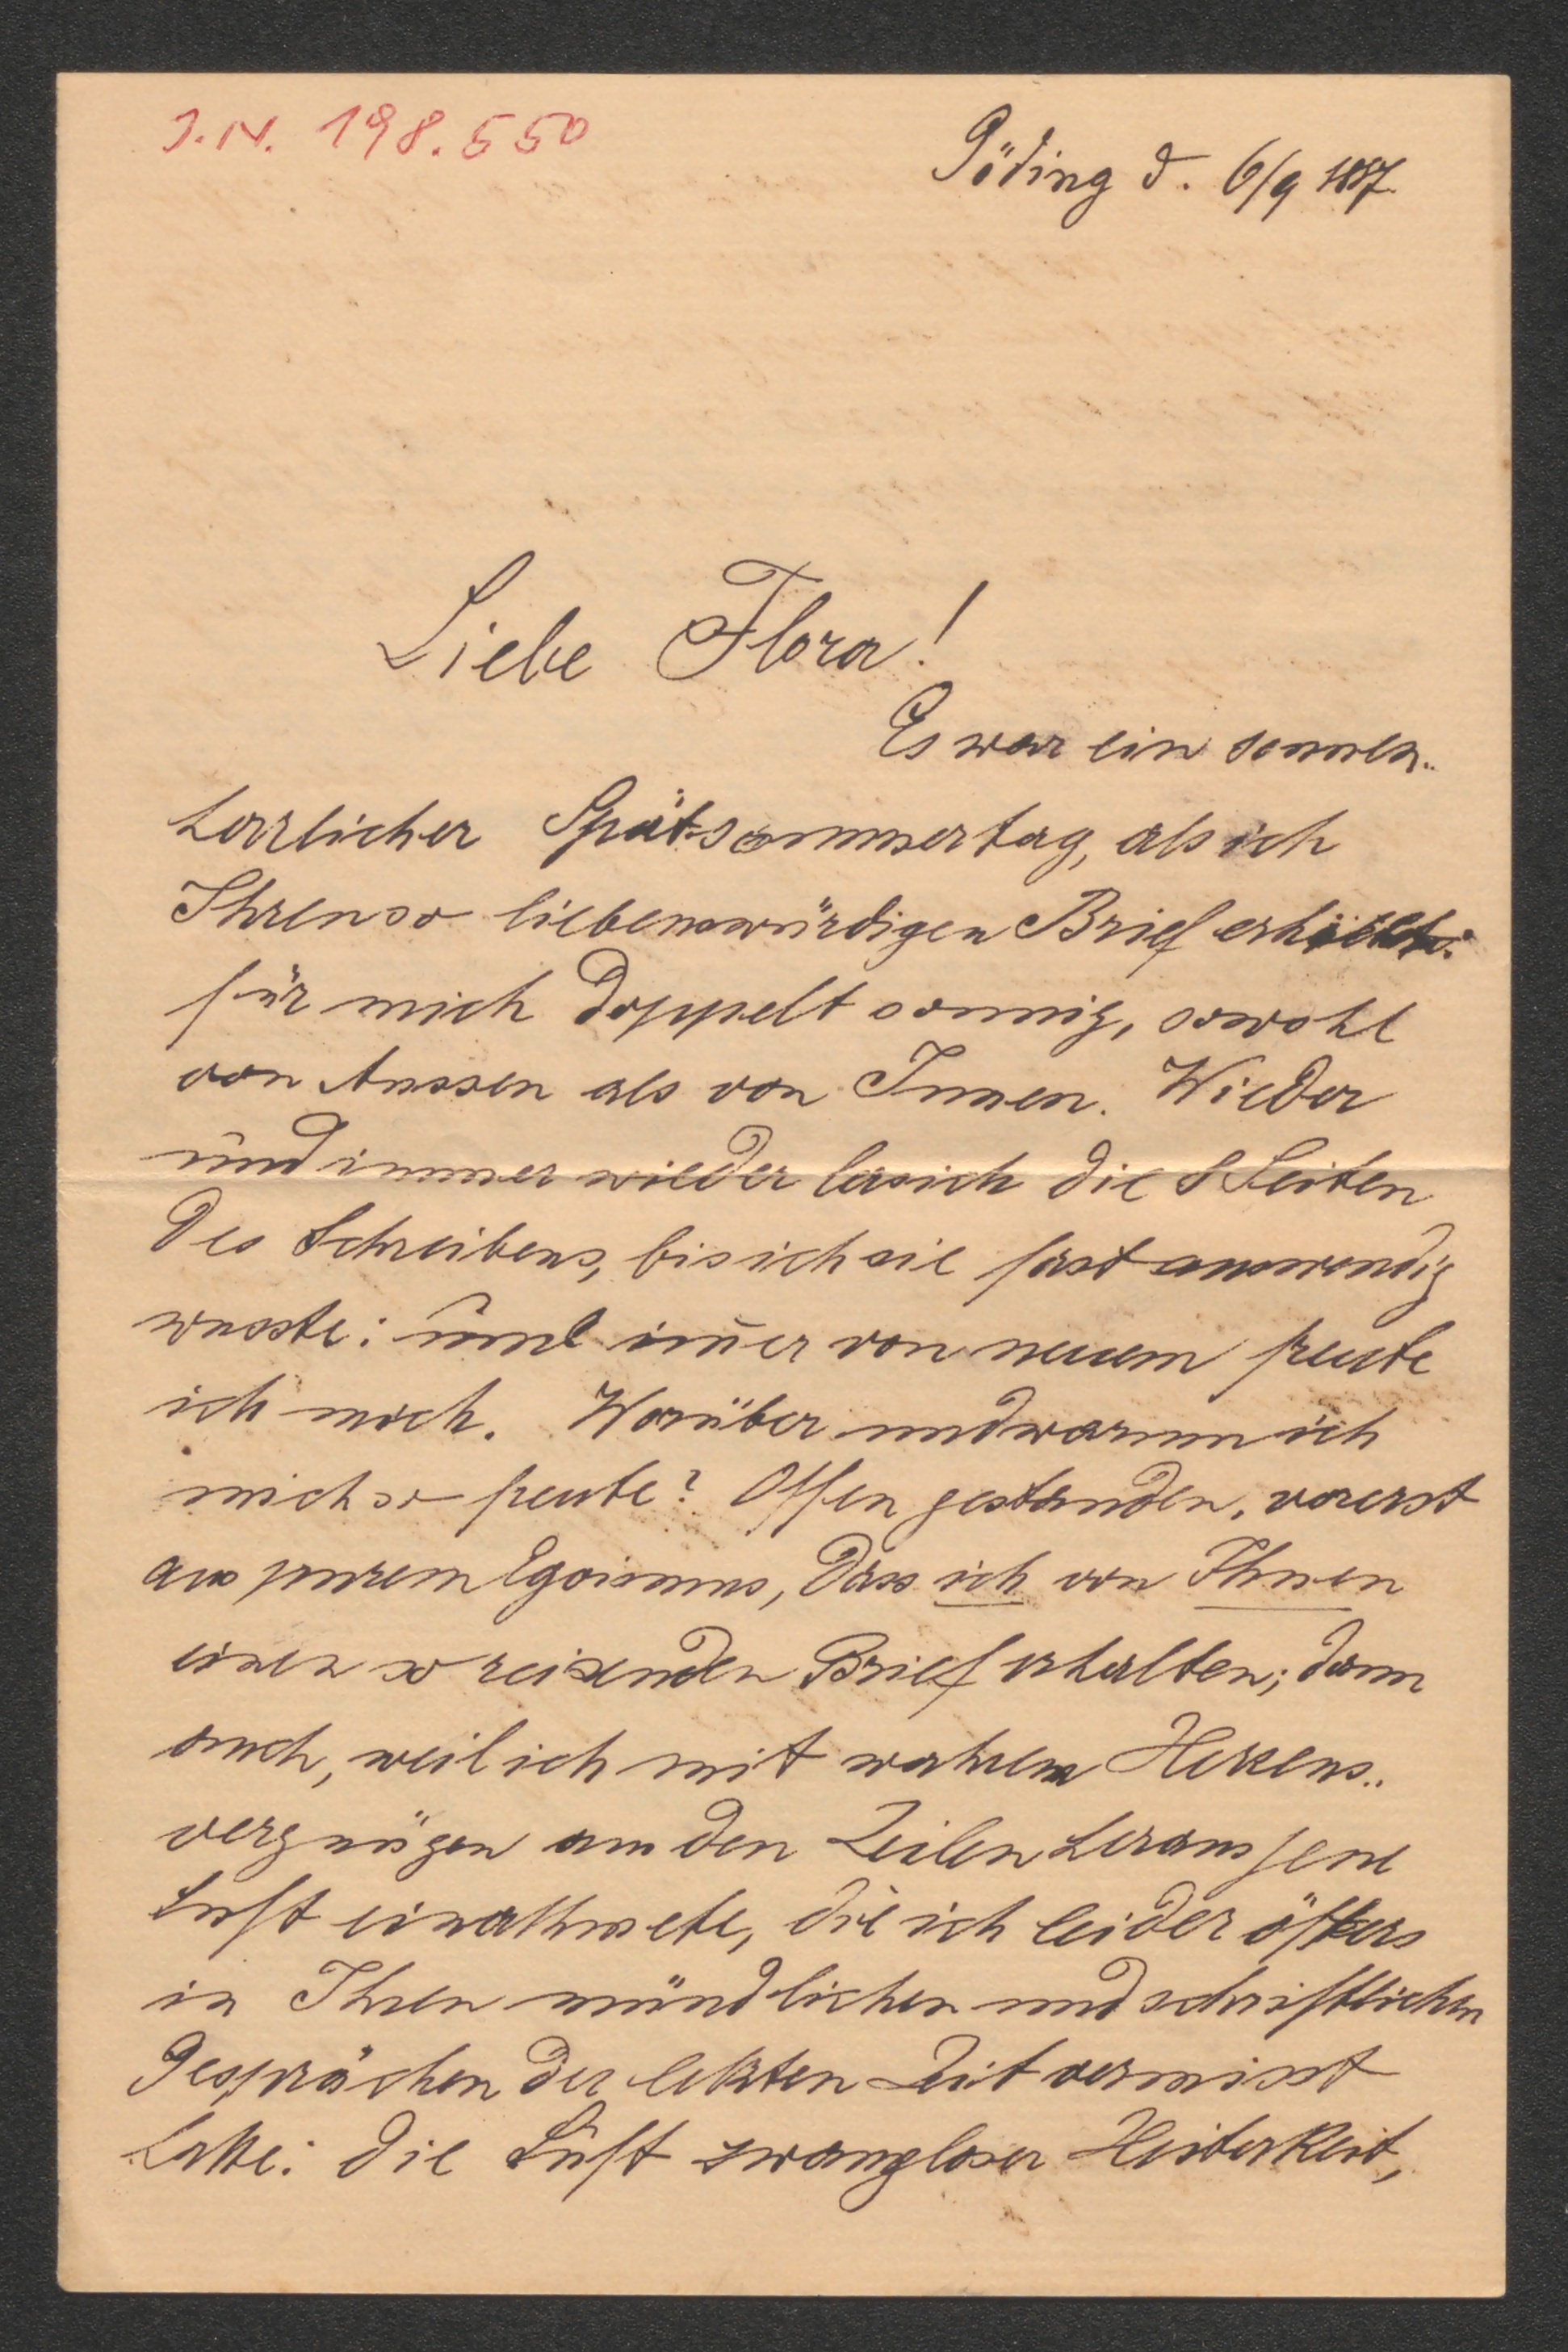 J. N. 198.550
Göding d. 6/9 1887.
Liebe Flora!
Es war ein sonnen..
herrlicher Spätsommertag, als ich
Ihren so liebenswürdigen Brief erhielt:
für mich doppelt sonnig, sowohl
von Aussen als von Innen. Wieder
und immer wieder las ich die 8 Seiten
des Schreibens, bis ich sie fast auswendig
wusste: und im̅er von neuem freute
ich mich. Worüber und warum ich
mich so freute? Offen gestanden, vorerst
aus purem Egoismus, dass ich von Ihnen
einen so reizenden Brief erhalten; dann
auch, weil ich mit wahrem Herzens..
vergnügen aus den Zeilen heraus jene
Luft einathmete, die ich leider öfters
in Ihren mündlichen und schriftlichen
Gesprächen der letzten Zeit vermisst
hatte: die Luft zwangloser Heiterkeit,